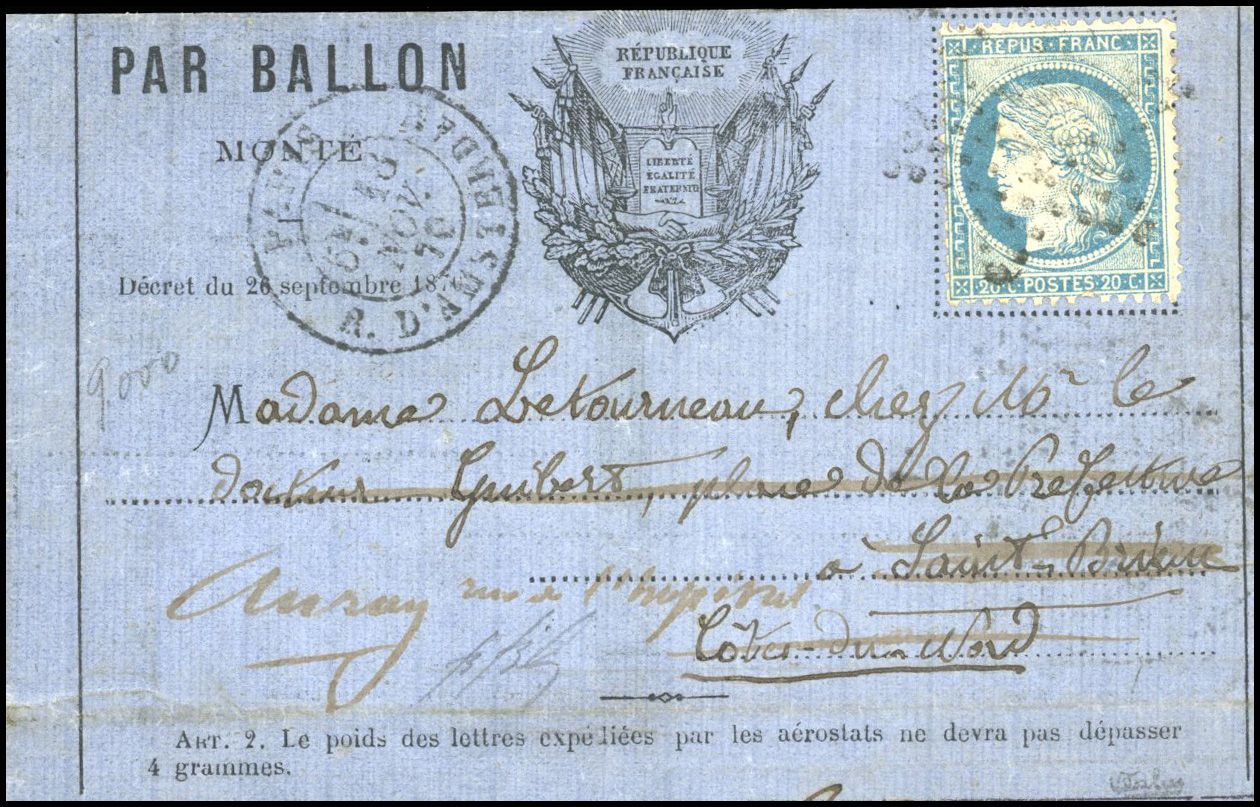 PAR BALLON
MONTÉ
RÉPUBLIQUE
FRANÇAISE
LIBERTÉ
ÉGALITÉ
FRATERNITÉ
REPUB. FRANC.
20.C. POSTES 20.C
PARIS R. D'AUST
NOV.
70
Décret du 26 septembre 1870
9.000
Madame Letourneau, chez Mr le
docteur Guibert, place de la Préfecture
à Saint-Brieuc
Auray rue à l'hopital
Côtes-du-Nord
ART. 2. Le poids des lettres expédiées par les aérostats ne devra pas dépasser
4 grammes.